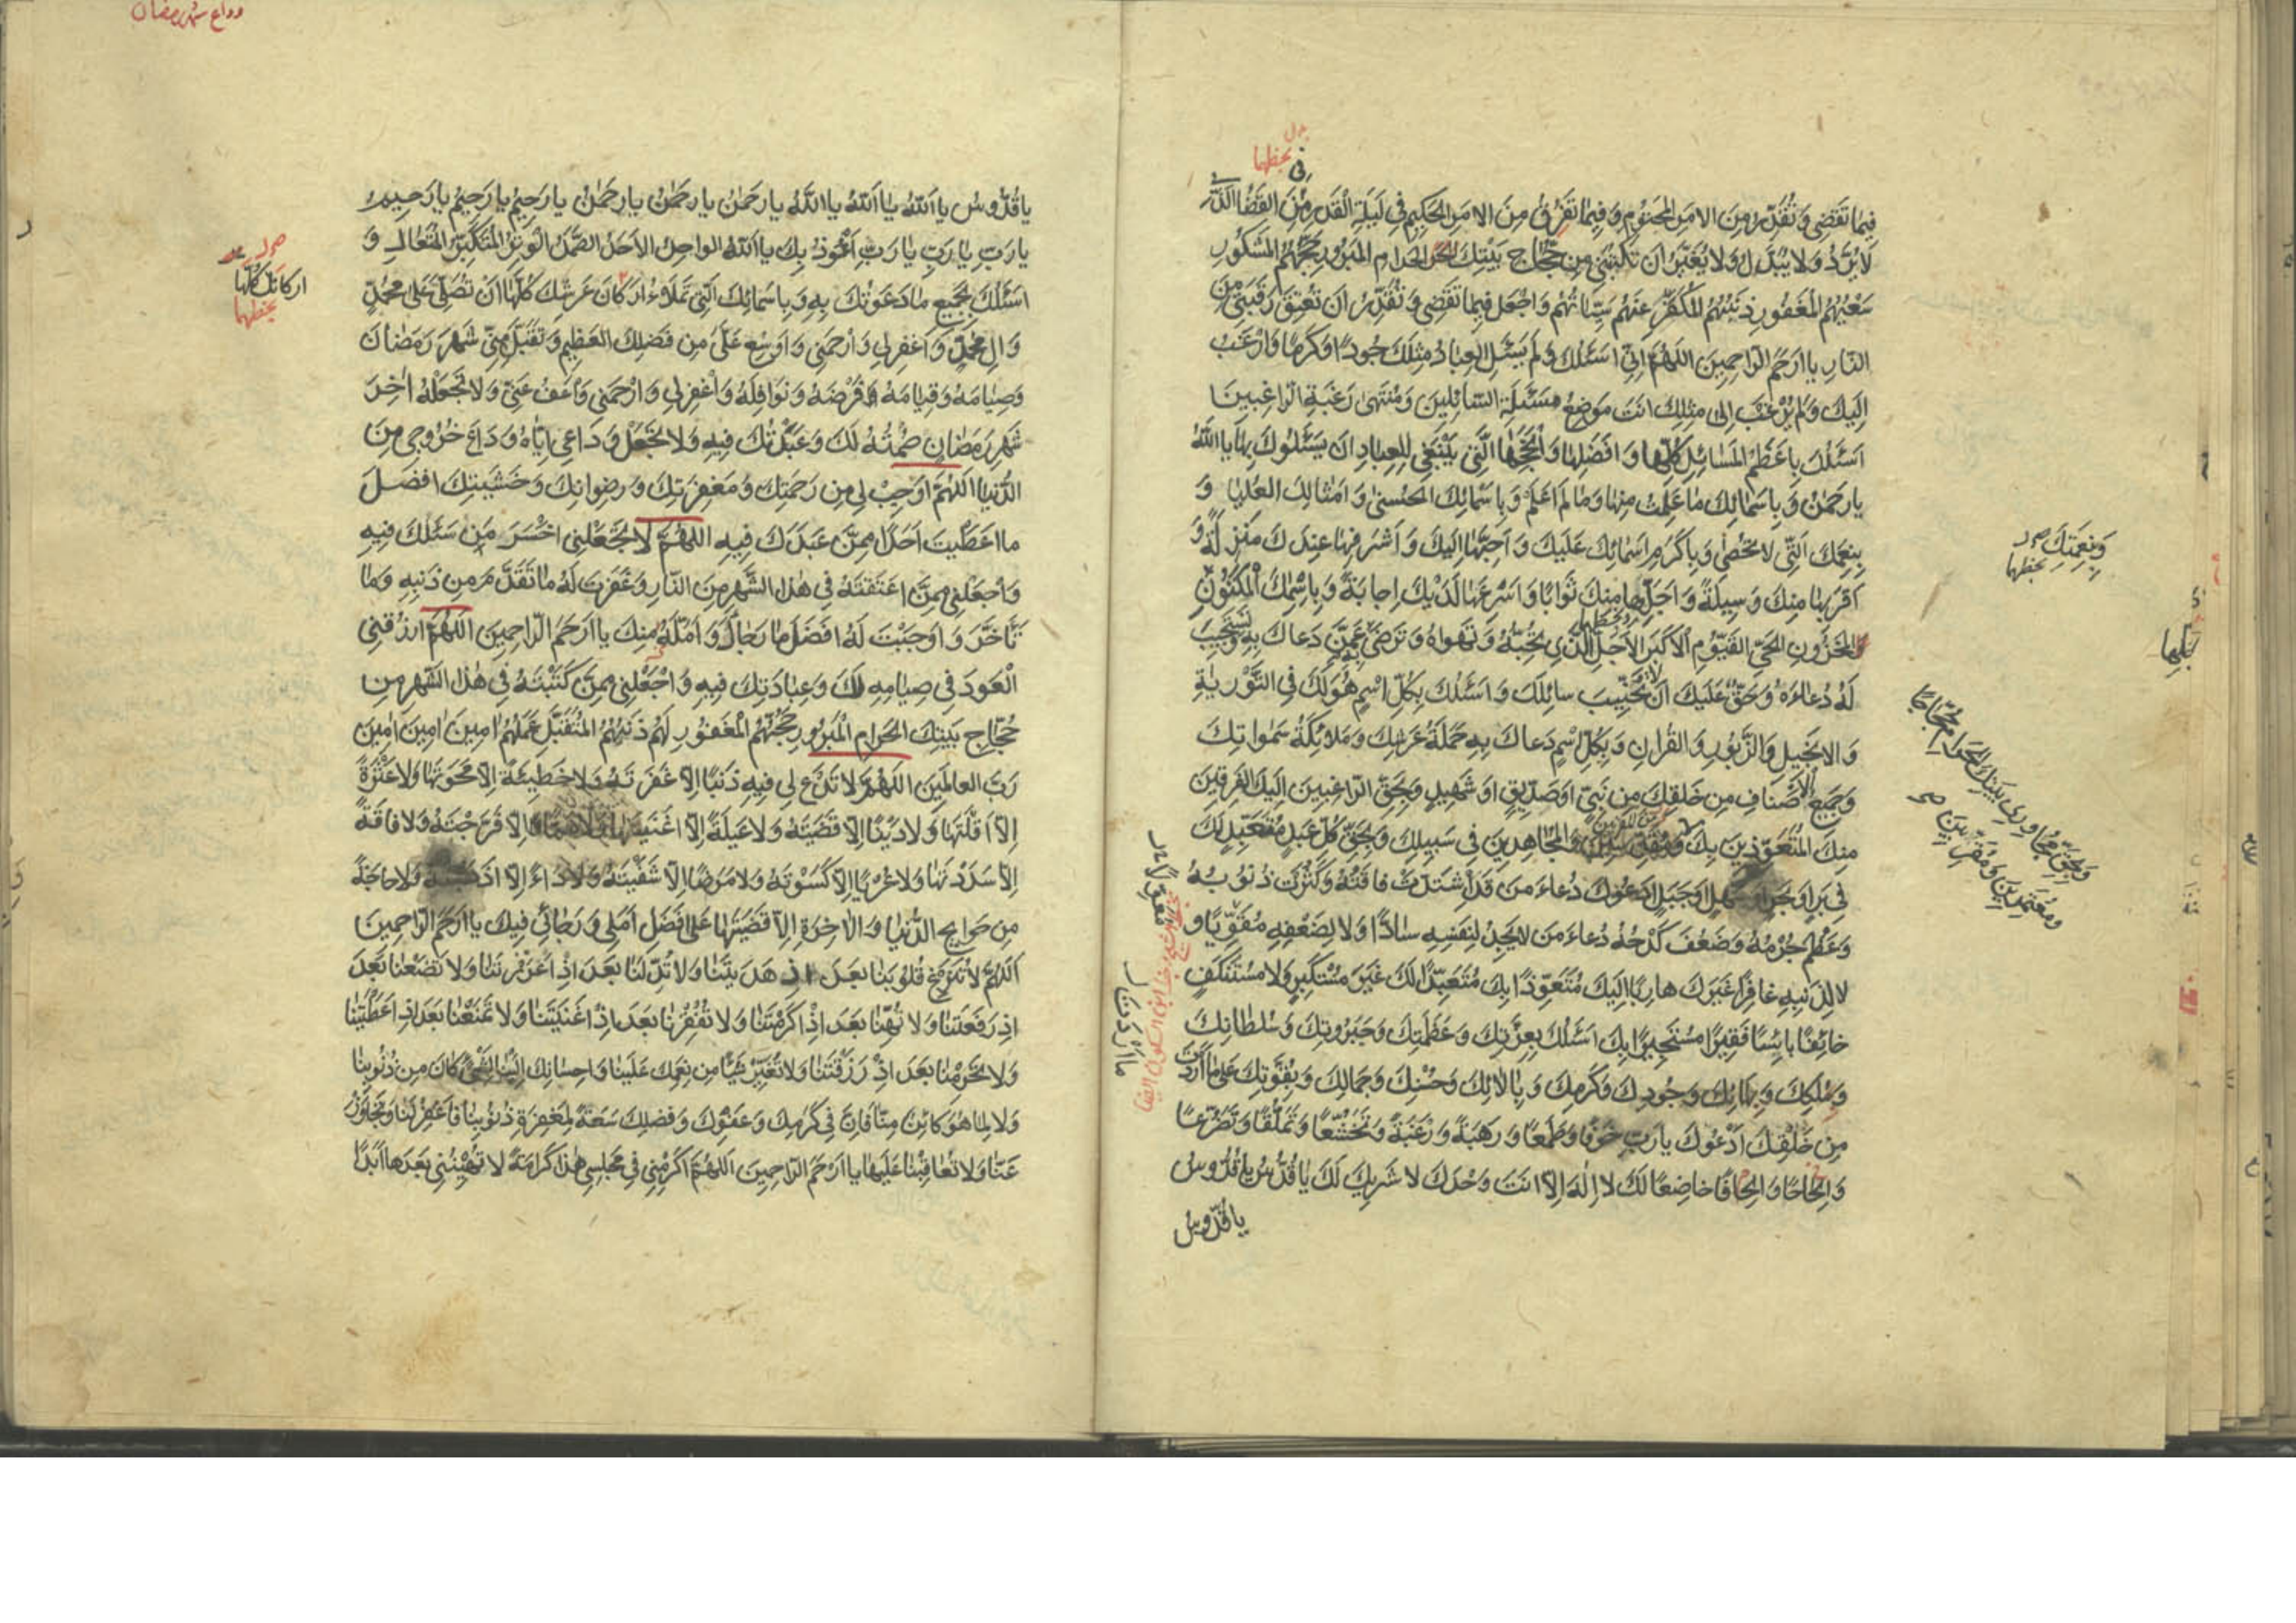 فِيمَا تَقْضِي وَتُقَدِّرُ مِنَ الْأَمْرِ الْمَحْتُومِ وَفِيمَا تَفْرُقُ مِنَ الْأَمْرِ الْحَكِيمِ فِي لَيْلَةِ الْقَدْرِ مِنَ الْقَضَاءِ الَّذِي
لَا يُرَدُّ وَلَا يُبَدَّلُ وَلَا يُغَيَّرُ أَنْ تَكْتُبَنِي مِنْ حُجَّاجِ بَيْتِكَ الْحَرَامِ الْمَبْرُورِ حَجُّهُمُ الْمَشْكُورِ
سَعْيُهُمُ الْمَغْفُورِ ذَنْبُهُمُ الْمُكَفَّرِ عَنْهُمْ سَيِّئَاتُهُمْ وَاجْعَلْ فِيمَا تَقْضِي وَتُقَدِّرُ أَنْ تُعْتِقَ رَقَبَتِي مِنَ
النَّارِ يَا أَرْحَمَ الرَّاحِمِينَ اللَّهُمَّ إِنِّي أَسْئَلُكَ وَلَمْ يَسْئَلِ الْعِبَادُ مِثْلَكَ جُودًا وَكَرَمًا وَأَرْغَبُ
إِلَيْكَ وَلَمْ يُرْغَبْ إِلَى مِثْلِكَ أَنْتَ مَوْضِعُ مَسْئَلَةِ السَّائِلِينَ وَمُنْتَهَى رَغْبَةِ الرَّاغِبِينَ
أَسْئَلُكَ بِأَعْظَمِ الْمَسَائِلِ كُلِّهَا وَأَفْضَلِهَا وَأَنْجَحِهَا الَّتِي يَنْبَغِي لِلْعِبَادِ أَنْ يَسْئَلُوكَ بِهَا يَا اللَّهُ
يَا رَحْمَنُ وَبِأَسْمَائِكَ مَا عَلِمْتُ مِنْهَا وَمَا لَمْ أَعْلَمْ وَبِأَسْمَائِكَ الْحُسْنَى وَأَمْثَالِكَ الْعُلْيَا وَ
بِنِعَمِكَ الَّتِي لَا تُحْصَى وَبِأَكْرَمِ أَسْمَائِكَ عَلَيْكَ وَأَحَبِّهَا إِلَيْكَ وَأَشْرَفِهَا عِنْدَكَ مَنْزِلَةً وَ
أَقْرَبِهَا مِنْكَ وَسِيلَةً وَأَجَلِّهَا مِنْكَ ثَوَابًا وَأَسْرَعِهَا لَدَيْكَ إِجَابَةً وَبِاسْمِكَ الْمَكْنُونِ
الْمَخْزُونِ الْحَيِّ الْقَيُّومِ الْأَكْبَرِ الْأَجَلِّ الَّذِي تُحِبُّهُ وَتَهْوَاهُ وَتَرْضَى عَمَّنْ دَعَاكَ بِهِ وَتَسْتَجِيبُ
لَهُ دُعَاءَهُ وَحَقٌّ عَلَيْكَ أَنْ لَا تُخَيِّبَ سَائِلَكَ وَأَسْئَلُكَ بِكُلِّ اسْمٍ هُوَ لَكَ فِي التَّوْرِيةِ
وَالْإِنْجِيلِ وَالزَّبُورِ وَالْقُرْآنِ وَبِكُلِّ اسْمٍ دَعَاكَ بِهِ حَمَلَةُ عَرْشِكَ وَمَلَائِكَةُ سَمَوَاتِكَ
وَجَمِيعُ الْأَصْنَافِ مِنْ خَلْقِكَ مِنْ نَبِيٍّ أَوْ صِدِّيقٍ أَوْ شَهِيدٍ وَبِحَقِّ الرَّاغِبِينَ إِلَيْكَ الْفَرِقِينَ
مِنْكَ الْمُتَعَوِّذِينَ بِكَ وَالْمُجَاهِدِينَ فِي سَبِيلِكَ وَبِحَقِّ كُلِّ عَبْدٍ مُتَعَبِّدٍ لَكَ
فِي بَرٍّ أَوْ بَحْرٍ أَوْ سَهْلٍ أَوْ جَبَلٍ أَدْعُوكَ دُعَاءَ مَنْ قَدِ اشْتَدَّتْ فَاقَتُهُ وَكَثُرَتْ ذُنُوبُهُ
وَعَظُمَ جُرْمُهُ وَضَعُفَ كَدْحُهُ دُعَاءَ مَنْ لَا يَجِدُ لِنَفْسِهِ سَادًّا وَلَا لِضَعْفِهِ مُقَوِّيًا وَ
لَا لِذَنْبِهِ غَافِرًا غَيْرَكَ هَارِبًا إِلَيْكَ مُتَعَوِّذًا بِكَ مُتَعَبِّدًا لَكَ غَيْرَ مُسْتَكْبِرٍ وَلَا مُسْتَنْكِفٍ
خَائِفًا بَائِسًا فَقِيرًا مُسْتَجِيرًا بِكَ أَسْئَلُكَ بِعِزَّتِكَ وَعَظَمَتِكَ وَجَبَرُوتِكَ وَسُلْطَانِكَ
وَبِمُلْكِكَ وَبِبَهَائِكَ وَجُودِكَ وَكَرَمِكَ وَبِآلَائِكَ وَحُسْنِكَ وَجَمَالِكَ وَبِقُوَّتِكَ عَلَى مَا أَرَدْتَ
مِنْ خَلْقِكَ أَدْعُوكَ يَا رَبِّ خَوْفًا وَطَمَعًا وَرَهْبَةً وَرَغْبَةً وَتَخَشُّعًا وَتَمَلُّقًا وَتَضَرُّعًا
وَإِلْحَاحًا وَإِلْحَافًا خَاضِعًا لَكَ لَا إِلَهَ إِلَّا أَنْتَ وَحْدَكَ لَا شَرِيكَ لَكَ يَا قُدُّوسُ يَا قُدُّوسُ
يَا قُدُّوسُ
وَبِنِعْمَتِكَ
بخطهما
وداع شهر رمضان
يَا قُدُّوسُ يَا اَللَّهُ يَا اَللَّهُ يَا اَللَّهُ يَا رَحْمَنُ يَا رَحْمَنُ يَا رَحْمَنُ يَا رَحِيمُ يَا رَحِيمُ يَا رَحِيمُ
يَا رَبِّ يَا رَبِّ يَا رَبِّ أَعُوذُ بِكَ يَا اَللَّهُ الْوَاحِدُ الْأَحَدُ الصَّمَدُ الْوِتْرُ الْمُتَكَبِّرُ الْمُتَعَالِ وَ
أَسْئَلُكَ بِجَمِيعِ مَا دَعَوْتُكَ بِهِ وَبِأَسْمَائِكَ الَّتِي تَمْلَاءُ أَرْكَانَ عَرْشِكَ كُلَّهَا أَنْ تُصَلِّيَ عَلَى مُحَمَّدٍ
وَآلِ مُحَمَّدٍ وَاغْفِرْ لِي وَارْحَمْنِي وَأَوْسِعْ عَلَيَّ مِنْ فَضْلِكَ الْعَظِيمِ وَتَقَبَّلْ مِنِّي شَهْرَ رَمَضَانَ
وَصِيَامَهُ وَقِيَامَهُ وَفَرْضَهُ وَنَوَافِلَهُ وَاغْفِرْ لِي وَارْحَمْنِي وَاعْفُ عَنِّي وَلَا تَجْعَلْهُ آخِرَ
شَهْرِ رَمَضَانَ صُمْتُهُ لَكَ وَعَبَدْتُكَ فِيهِ وَلَا تَجْعَلْ وَدَاعِي إِيَّاهُ وَدَاعَ خُرُوجِي مِنَ
الدُّنْيَا اللَّهُمَّ أَوْجِبْ لِي مِنْ رَحْمَتِكَ وَمَغْفِرَتِكَ وَرِضْوَانِكَ وَخَشْيَتِكَ أَفْضَلَ
مَا أَعْطَيْتَ أَحَدًا مِمَّنْ عَبَدَكَ فِيهِ اللَّهُمَّ لَا تَجْعَلْنِي أَخْسَرَ مَنْ سَئَلَكَ فِيهِ
وَاجْعَلْنِي مِمَّنْ أَعْتَقْتَهُ فِي هَذَا الشَّهْرِ مِنَ النَّارِ وَغَفَرْتَ لَهُ مَا تَقَدَّمَ مِنْ ذَنْبِهِ وَمَا
تَأَخَّرَ وَأَوْجَبْتَ لَهُ أَفْضَلَ مَا رَجَاكَ وَأَمَّلَهُ مِنْكَ يَا أَرْحَمَ الرَّاحِمِينَ اللَّهُمَّ ارْزُقْنِي
الْعَوْدَ فِي صِيَامِهِ لَكَ وَعِبَادَتِكَ فِيهِ وَاجْعَلْنِي مِمَّنْ كَتَبْتَهُ فِي هَذَا الشَّهْرِ مِنْ
حُجَّاجِ بَيْتِكَ الْحَرَامِ الْمَبْرُورِ حَجُّهُمُ الْمَغْفُورِ لَهُمْ ذَنْبُهُمُ الْمُتَقَبَّلِ عَمَلُهُمْ آمِينَ آمِينَ آمِينَ
رَبَّ الْعَالَمِينَ اللَّهُمَّ لَا تَدَعْ لِي فِيهِ ذَنْبًا إِلَّا غَفَرْتَهُ وَلَا خَطِيئَةً إِلَّا مَحَوْتَهَا وَلَا عَثْرَةً
إِلَّا أَقَلْتَهَا وَلَا دَيْنًا إِلَّا قَضَيْتَهُ وَلَا عَيْلَةً إِلَّا أَغْنَيْتَهَا وَلَا هَمًّا إِلَّا فَرَّجْتَهُ وَلَا فَاقَةً
إِلَّا سَدَدْتَهَا وَلَا عُرْيًا إِلَّا كَسَوْتَهُ وَلَا مَرَضًا إِلَّا شَفَيْتَهُ وَلَا دَاءً إِلَّا أَذْهَبْتَهُ وَلَا حَاجَةً
مِنْ حَوَائِجِ الدُّنْيَا وَالْآخِرَةِ إِلَّا قَضَيْتَهَا عَلَى أَفْضَلِ أَمَلِي وَرَجَائِي فِيكَ يَا أَرْحَمَ الرَّاحِمِينَ
اللَّهُمَّ لَا تُزِغْ قُلُوبَنَا بَعْدَ إِذْ هَدَيْتَنَا وَلَا تُذِلَّنَا بَعْدَ إِذْ أَعْزَزْتَنَا وَلَا تَضَعْنَا بَعْدَ
إِذْ رَفَعْتَنَا وَلَا تُهِنَّا بَعْدَ إِذْ أَكْرَمْتَنَا وَلَا تُفْقِرْنَا بَعْدَ إِذْ أَغْنَيْتَنَا وَلَا تَمْنَعْنَا بَعْدَ إِذْ أَعْطَيْتَنَا
وَلَا تَحْرِمْنَا بَعْدَ إِذْ رَزَقْتَنَا وَلَا تُغَيِّرْ شَيْئًا مِنْ نِعَمِكَ عَلَيْنَا وَإِحْسَانِكَ إِلَيْنَا لِشَيْءٍ كَانَ مِنْ ذُنُوبِنَا
وَلَا لِمَا هُوَ كَائِنٌ مِنَّا فَإِنَّ فِي كَرَمِكَ وَعَفْوِكَ وَفَضْلِكَ سَعَةً لِمَغْفِرَةِ ذُنُوبِنَا فَاغْفِرْ لَنَا وَتَجَاوَزْ
عَنَّا وَلَا تُعَاقِبْنَا عَلَيْهَا يَا أَرْحَمَ الرَّاحِمِينَ اللَّهُمَّ أَكْرِمْنِي فِي مَجْلِسِي هَذَا كَرَامَةً لَا تُهِينُنِي بَعْدَهَا أَبَدًا
اركانك كلها
بخطهما